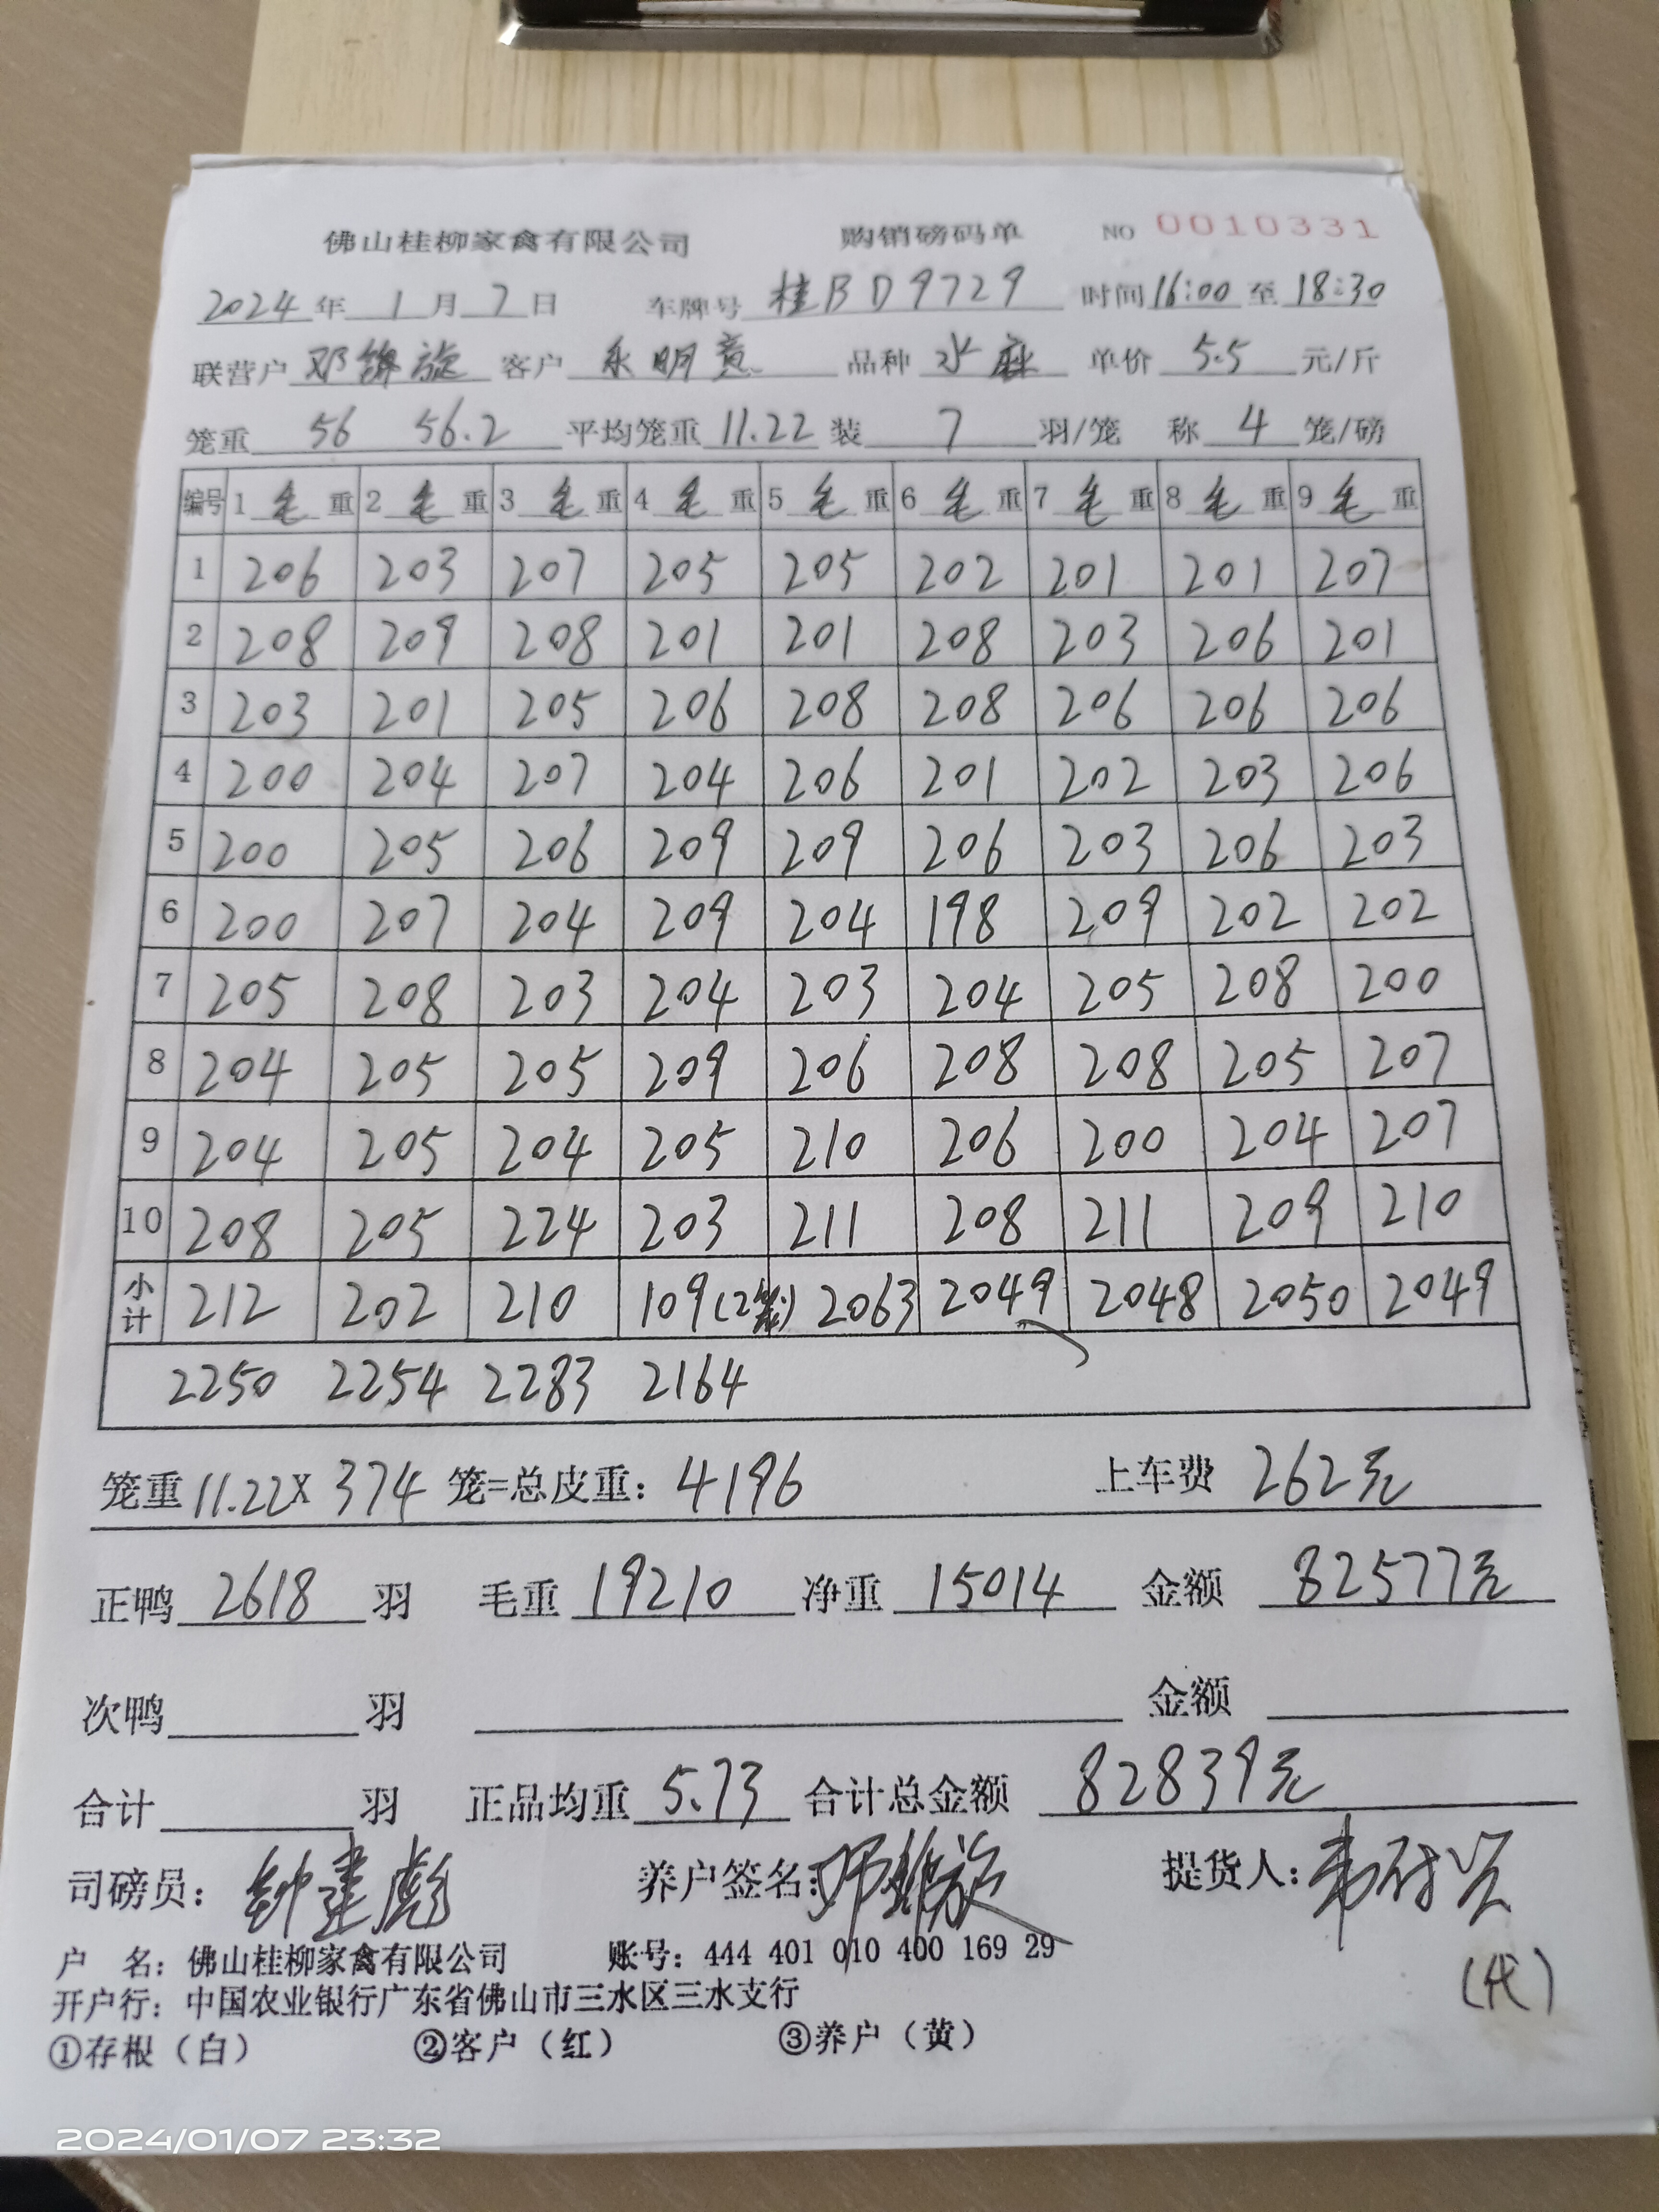 佛山桂柳家禽有限公司 购销磅码单 NO 0010331
2024年1月7日 车牌号 桂BD9729 时间16:00至18:30
联营户 邓锦旋 客户 永明 品种 水麻 单价 5.5 元/斤
笼重 56 56.2 平均笼重 11.22 装 7 羽/笼 称 4 笼/磅
编号 1 毛 重 2 毛 重 3 毛 重 4 毛 重 5 毛 重 6 毛 重 7 毛 重 8 毛 重 9 毛 重
1 206 203 207 205 205 202 201 201 207
2 208 209 208 201 201 208 203 206 201
3 203 201 205 206 208 208 206 206 206
4 200 204 207 204 206 201 202 203 206
5 200 205 206 209 209 206 203 206 203
6 200 207 204 209 204 198 209 202 202
7 205 208 203 204 203 204 205 208 200
8 204 205 205 209 206 208 208 205 207
9 204 205 204 205 210 206 200 204 207
10 208 205 224 203 211 208 211 209 210
小计 212 202 210 109(2笼) 2063 2049 2048 2050 2049
2250 2254 2283 2164
笼重 11.22X 374 笼=总皮重: 4196 上车费 262元
正鸭 2618 羽 毛重 19210 净重 15014 金额 82577元
次鸭 羽 金额
合计 羽 正品均重 5.73 合计总金额 82839元
司磅员: 钟建彪 养户签名: 提货人:
(代)
户 名: 佛山桂柳家禽有限公司 账号: 444 401 010 400 169 29
开户行: 中国农业银行广东省佛山市三水区三水支行
①存根（白） ②客户（红） ③养户（黄）
2024/01/07 23:32